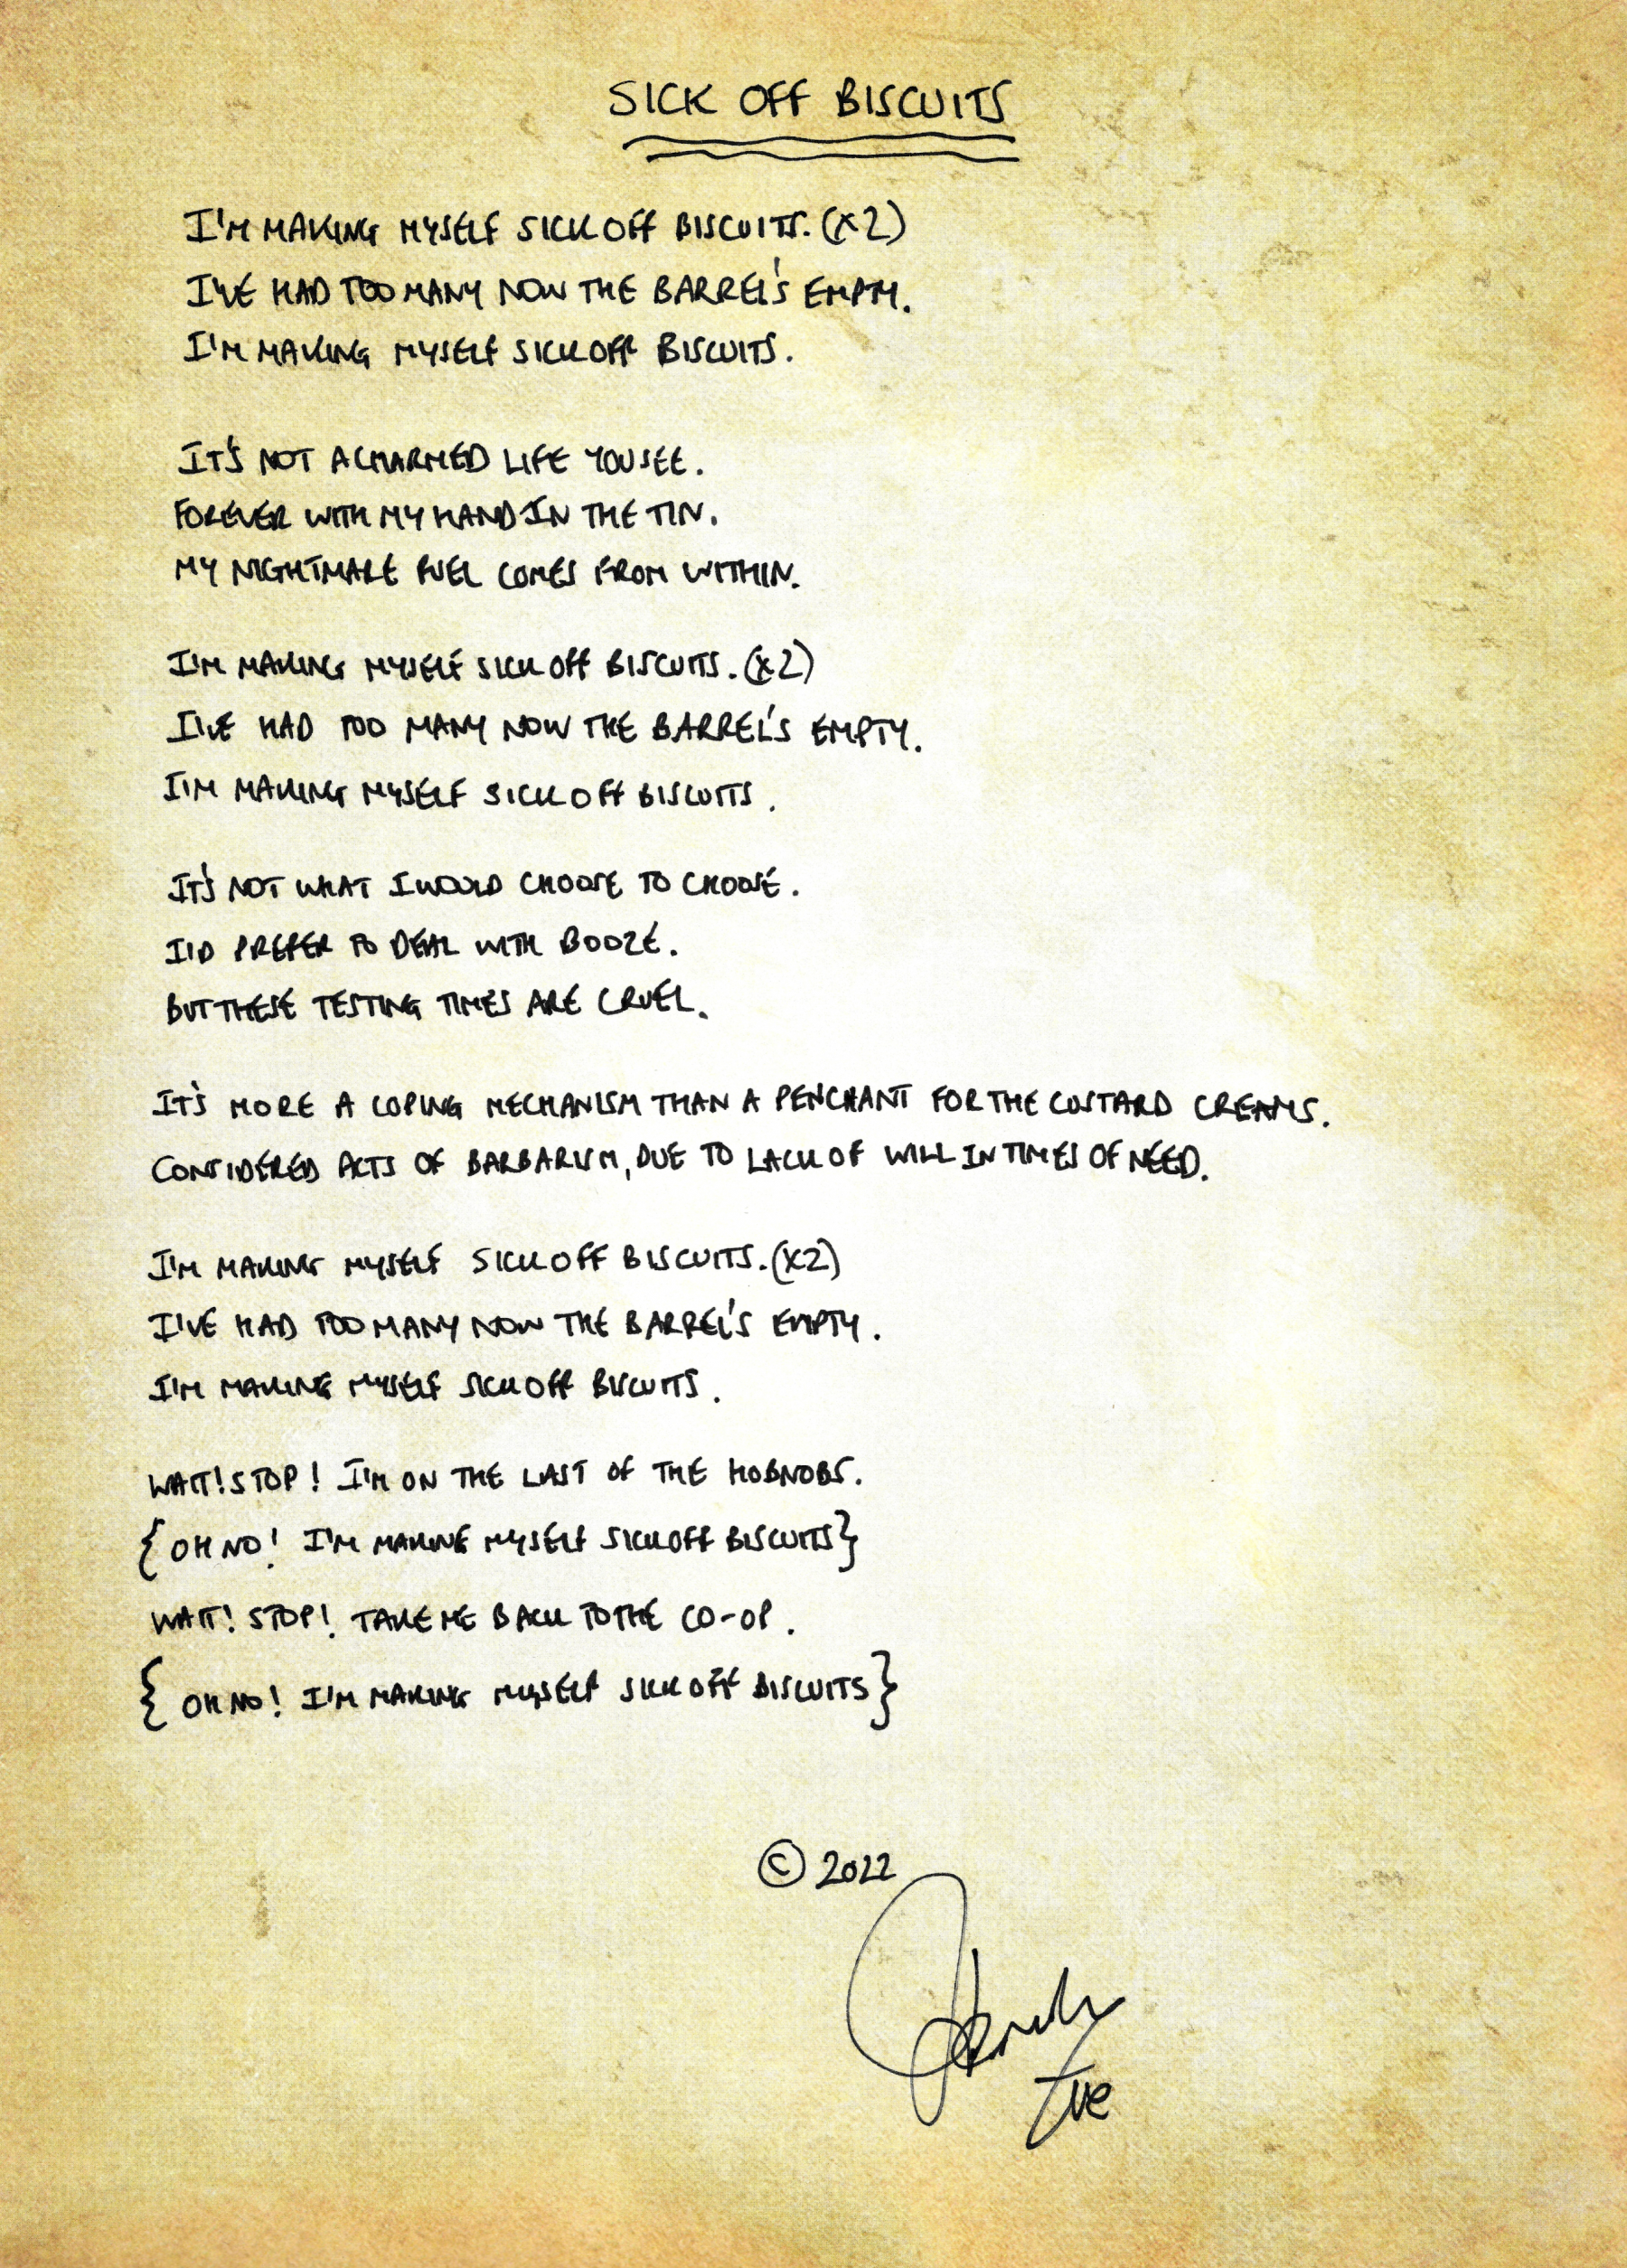 SICK OFF BISCUITS
I'M MAKING MYSELF SICK OFF BISCUITS. (X2)
I'VE HAD TOO MANY NOW THE BARREL'S EMPTY.
I'M MAKING MYSELF SICK OFF BISCUITS.
IT'S NOT A CHARMED LIFE YOU SEE.
FOREVER WITH MY HAND IN THE TIN.
MY NIGHTMARE FUEL COMES FROM WITHIN.
I'M MAKING MYSELF SICK OFF BISCUITS. (X2)
I'VE HAD TOO MANY NOW THE BARREL'S EMPTY.
I'M MAKING MYSELF SICK OFF BISCUITS.
IT'S NOT WHAT I WOULD CHOOSE TO CHOOSE.
I'D PREFER TO DEAL WITH BOOZE.
BUT THESE TESTING TIMES ARE CRUEL.
IT'S MORE A COPING MECHANISM THAN A PENCHANT FOR THE CUSTARD CREAMS.
CONSIDERED ACTS OF BARBARISM, DUE TO LACK OF WILL IN TIMES OF NEED.
I'M MAKING MYSELF SICK OFF BISCUITS. (X2)
I'VE HAD TOO MANY NOW THE BARREL'S EMPTY.
I'M MAKING MYSELF SICK OFF BISCUITS.
WAIT! STOP! I'M ON THE LAST OF THE HOBNOBS.
{OH NO! I'M MAKING MYSELF SICK OFF BISCUITS}
WAIT! STOP! TAKE ME BACK TO THE CO-OP.
{OH NO! I'M MAKING MYSELF SICK OFF BISCUITS}
© 2022